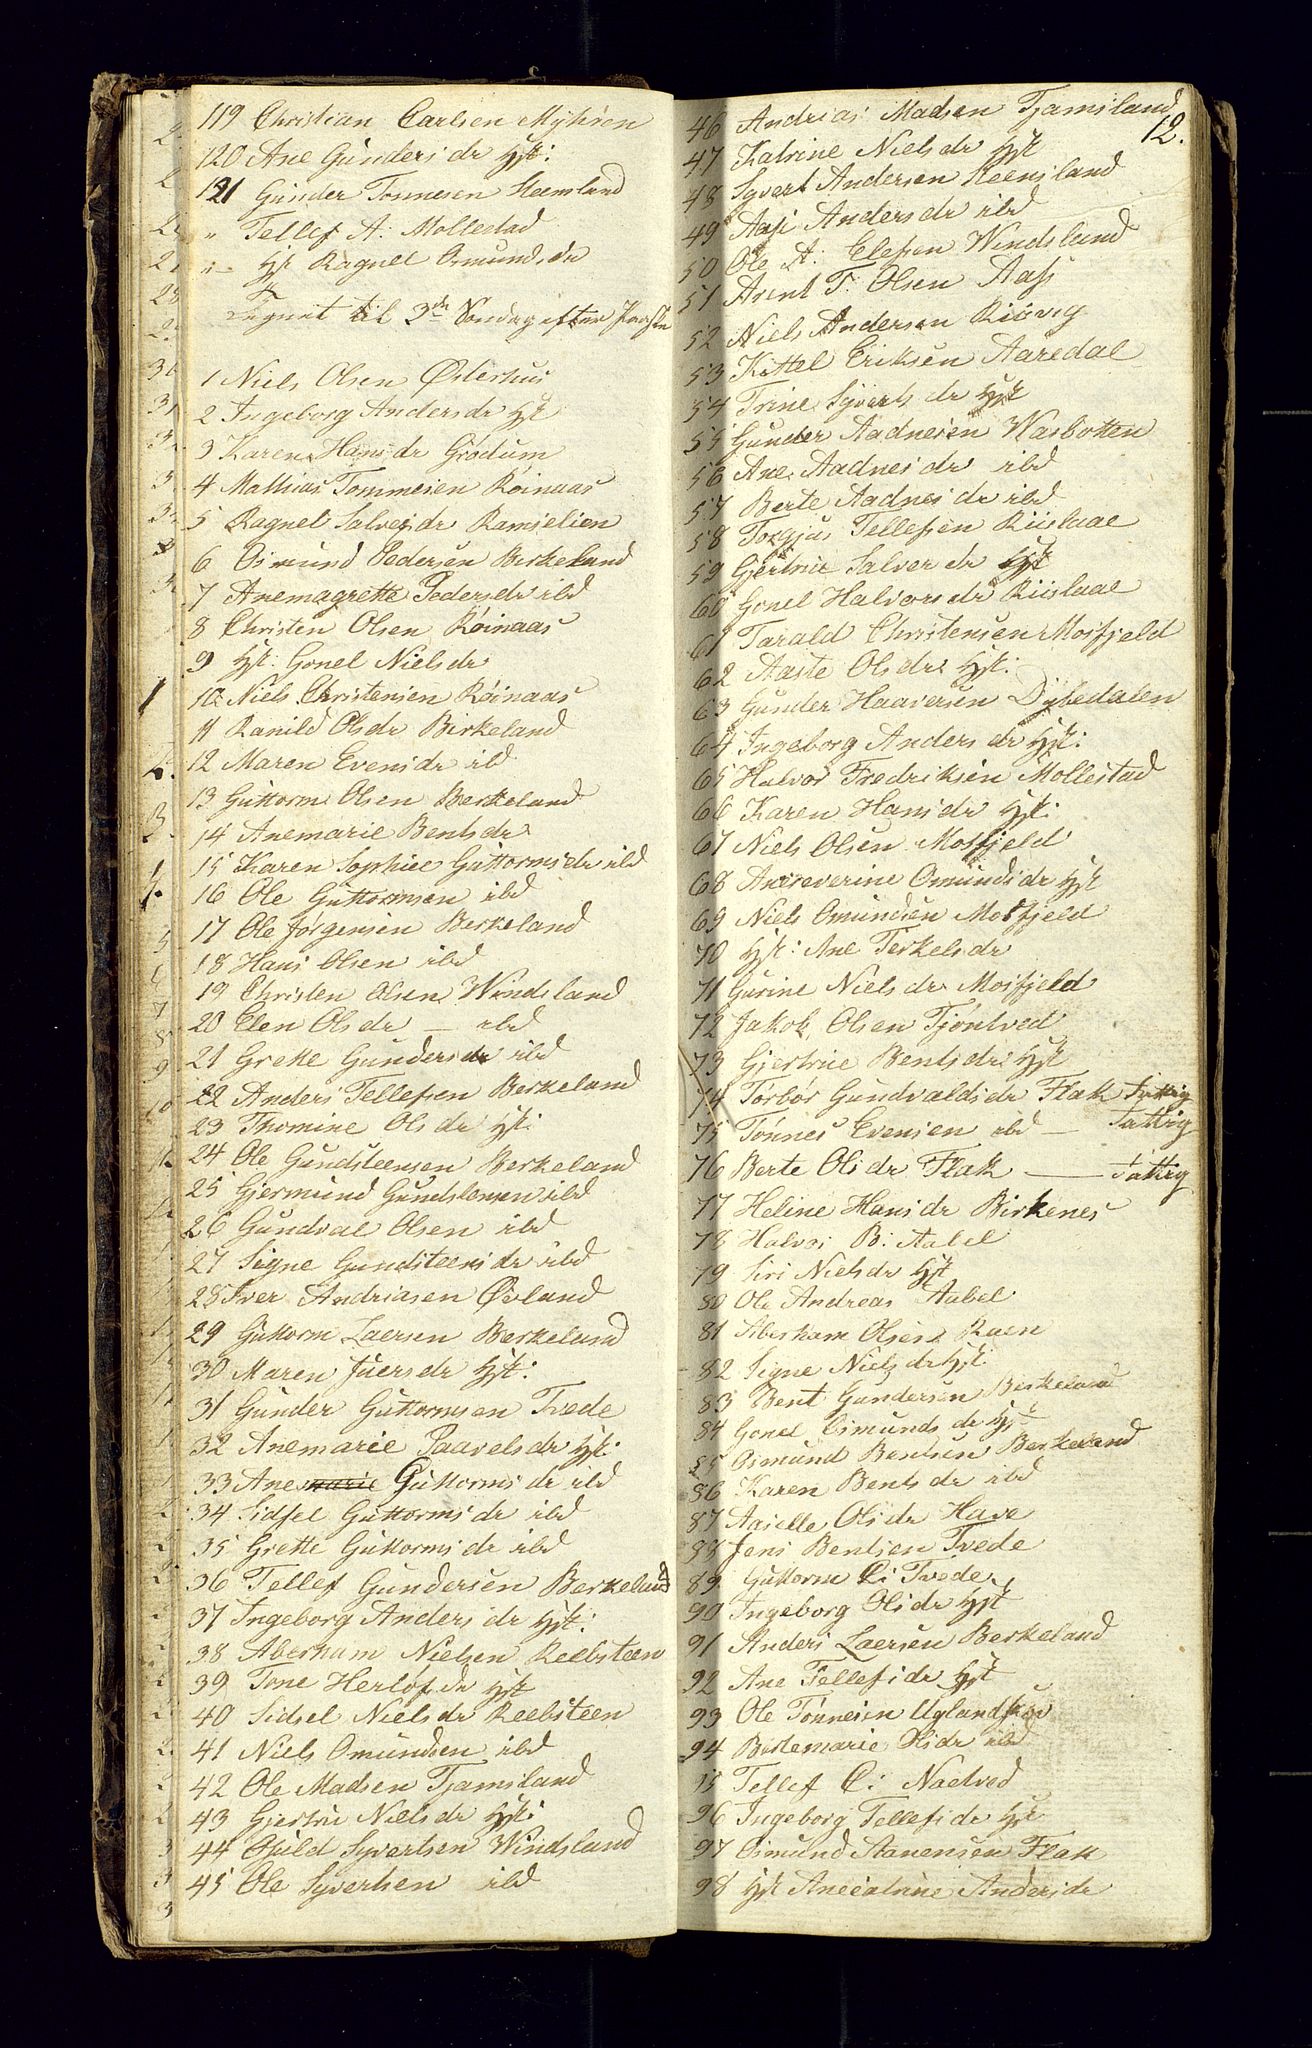 119 Christian Carlsen Myhren
120 Ane Gunders dr Hst:
121 Gunder Tonnesen Steensland
" Tellef A: Mollestad
"- Hst Ragnel Osmunds dr
Tegnet til 3de Søndag efter Paaske
1 Niels Olsen Østerhus
2 Ingeborg Anders dr Hst
3 Karen Hans dr Grødum
4 Mathias Tommesen Røinaas
5 Ragnel Salves dr Ramselien
6 Osmund Pedersen Berkeland
7 Anemagrette Peders dr ibd
8 Christen Olsen Røinaas
9 Hst: Gonel Niels dr
10 Niels Christensen Røinaas
11 Ranild Ols dr Birkeland
12 Maren Evens dr ibd
13 Guttorm Olsen Berkeland
14 Anemarie Bents dr
15 Karen Sophie Guttorms dr ibd
16 Ole Guttormsen ibd
17 Ole Jørgensen Berkeland
18 Hans Olsen ibd
19 Christen Olsen Windsland
20 Elen Ols dr — ibd
21 Grette Gunders dr ibd
22 Anders Tellefsen Berkeland
23 Thomine Ols dr Hst:
24 Ole Gundsteensen Berkeland
25 Gjermund Gundstensen ibd
26 Gundval Olsen ibd
27 Signe Gundsteens dr ibd
28 Iver Andriasen Øvland
29 Guttorm Laersen Berkeland
30 Maren Juers dr Hst:
31 Gunder Guttormsen Tvede
32 Anemarie Paavels dr Hst:
33 Anemarie Guttorms dr ibd
34 Sidsel Guttorms dr ibd
35 Grette Guttorms dr ibd
36 Tellef Gundersen Berkeland
37 Ingeborg Anders dr Hst:
38 Aberham Nielsen Reebsteen
39 Tone Herlofs dr Hst
40 Sidsel Niels dr Reebsteen
41 Niels Omundsen ibd
42 Ole Madsen Tjamsland
43 Gjertrue Niels dr Hst:
44 Ouild Syvertsen Windsland
45 Ole Syvertsen ibd
12.
46 Andrias Madsen Tjamsland
47 Katrine Niels dr Hst
48 Syvert Andersen Steensland
49 Aase Anders dr ibd
50 Ole A: Elefsen Windsland
51 Arent T. Olsen Aass
52 Niels Andersen Riisvig
53 Kittel Eriksen Aaredal
54 Trine Syverts dr Hst
55 Gunder Aadnesen Wasbotten
56 Ane Aadnes dr ibd
57 Berte Aadnes dr ibd
58 Torgius Tellefsen Riislaae
59 Gjertrue Salves dr Hst
60 Gonel Halvors dr Riislaae
61 Tarald Christensen Mosfjeld
62 Aaste Ols dr Hst:
63 Gunder Haaversen Dybedalen
64 Ingeborg Anders dr Hst:
65 Halvor Fredriksen Mollestad
66 Karen Hans dr Hst:
67 Niels Olsen Mosfjeld
68 Anseverine Omunds dr Hst
69 Niels Omundsen Mosfjeld
70 Hst: Ane Terkels dr
71 Gurine Niels dr Mosfjeld
72 Jakob Olsen Tjøntved
73 Gjertrue Bents dr Hst
74 Torbor Gundvalds dr Flak Fattig
75 Tønnes Evensen ibd — Fattig
76 Berte Ols dr Flak — Fattig
77 Heline Hans dr Birkenes
78 Halvor B: Aabel
79 Siri Niels dr Hst
80 Ole Andreas Aabel
81 Aberham Olsen Raen
82 Signe Niels dr Hst
83 Bent Gundersen Berkeland
84 Gonel Osmunds dr Hst
85 Osmund Bentsen Berkeland
86 Karen Bents dr ibd
87 Aasille Ols dr Have
88 Jens Bentsen Tvede
89 Guttorm C: Tvede
90 Ingeborg Ols dr Hst
91 Anders Laersen Berkeland
92 Ane Tellefs dr Hst
93 Ole Tønnesen Uglandskov
94 Bertemarie Ols dr ibd
95 Tellef C: Naetved
96 Ingeborg Tellefs dr Hst
97 Osmund Aanensen Flak
98 Hst Anecatrine Anders dr